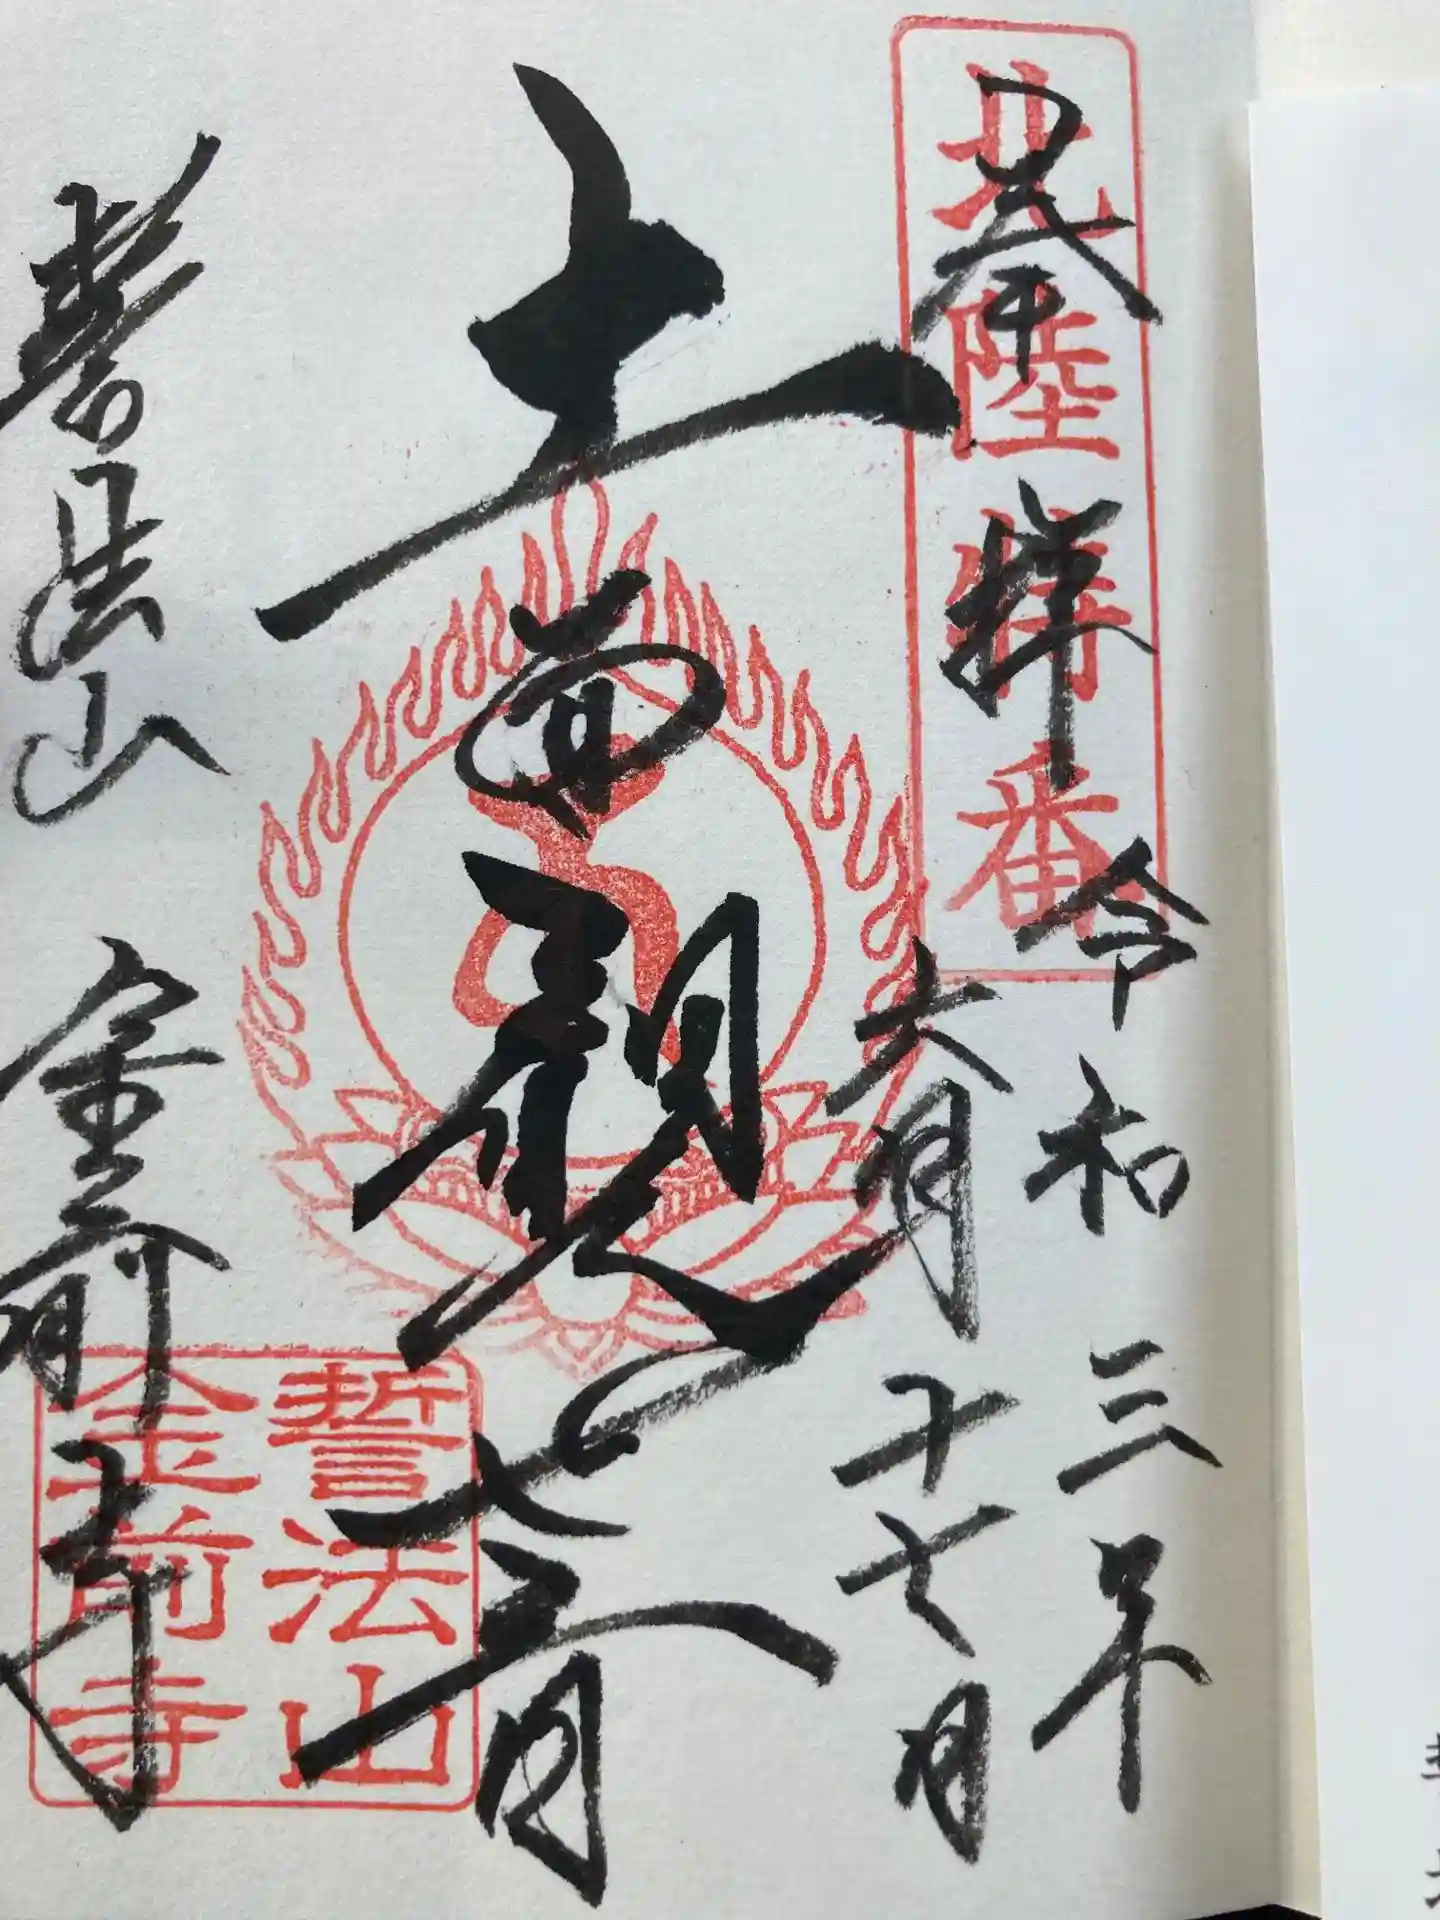 北陸特番
奉拝
令和三年
六月十七日
十一面観世音
誓法山 金前寺
誓法山
金前寺